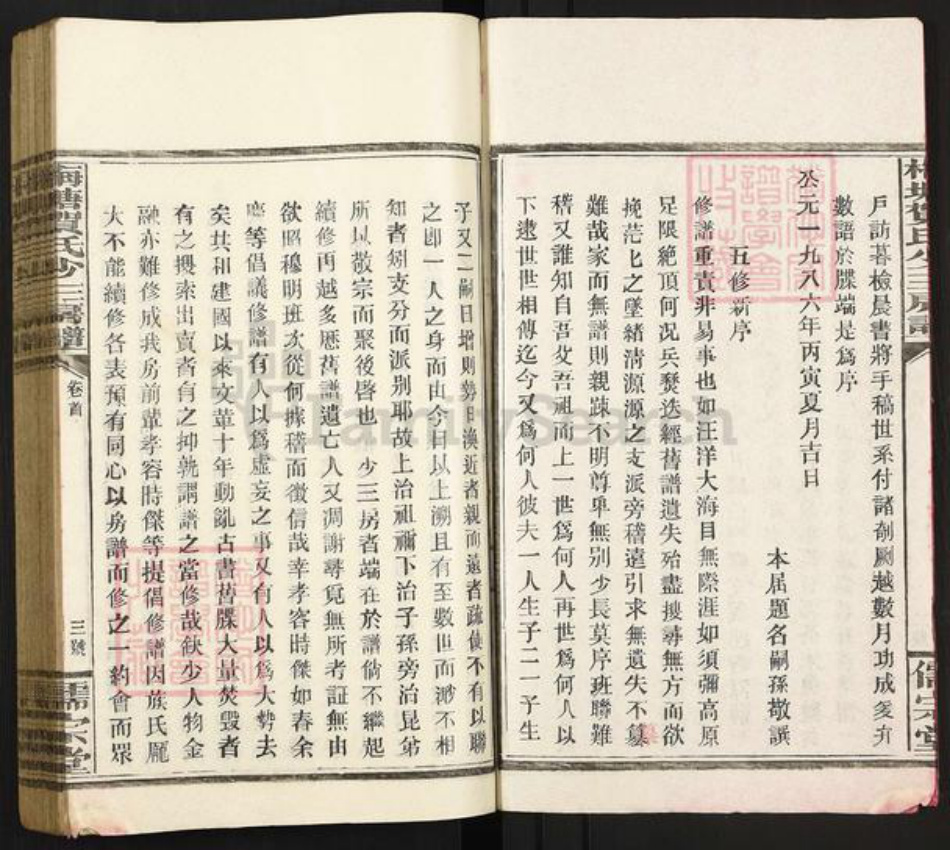 戶訪暮檢晨書將手稿世系付諸剞劂越數月功成爰弁
數語於牒端是爲序
公元一九八六年丙寅夏月吉日
本屆題名嗣孫敬譔
五修新序
修譜重責非易事也如汪洋大海目無際涯如須彌高原
足限絶頂何況兵燹迭經舊譜遺失殆盡搜尋無方而欲
挽茫七之墜緒清源源之支派旁稽遠引求無遺失不墓
難哉家而無譜則親踈不明尊卑無别少長莫序班聯難
稽又誰知自吾父吾祖而上一世爲何人再世爲何人以
下逮世世相傳迄今又爲何人彼夫一人生子二一予生
子又二嗣日增則勢日渙近者親而遠者疏使不有以聯
之卽一人之身而由今日以上溯且有至數世而渺不相
知者矧支分而派别耶故上治祖禰下治子孫旁治昆弟
所以敬宗而聚後啓也 少三房者端在於譜倘不繼起
續修再越多歷舊譜遺亡人又凋謝尋覓無所考証無由
欲昭穆明班次從何據稽而徵信哉幸孝容時傑如春余
應等倡議修譜有人以爲虛妄之事又有人以爲大勢去
矣共和建國以來文革十年動亂古書舊牒大量焚毀者
有之搜索出賣者有之抑孰謂譜之當修哉缺少人物金
融亦難修成我房前輩孝容時傑等提倡修譜因族氏龎
大不能續修各表預有同心以房譜而修之一約會而眾
梅塘賀氏少三房譜
卷首
三號
儒宗堂
FamilySearch